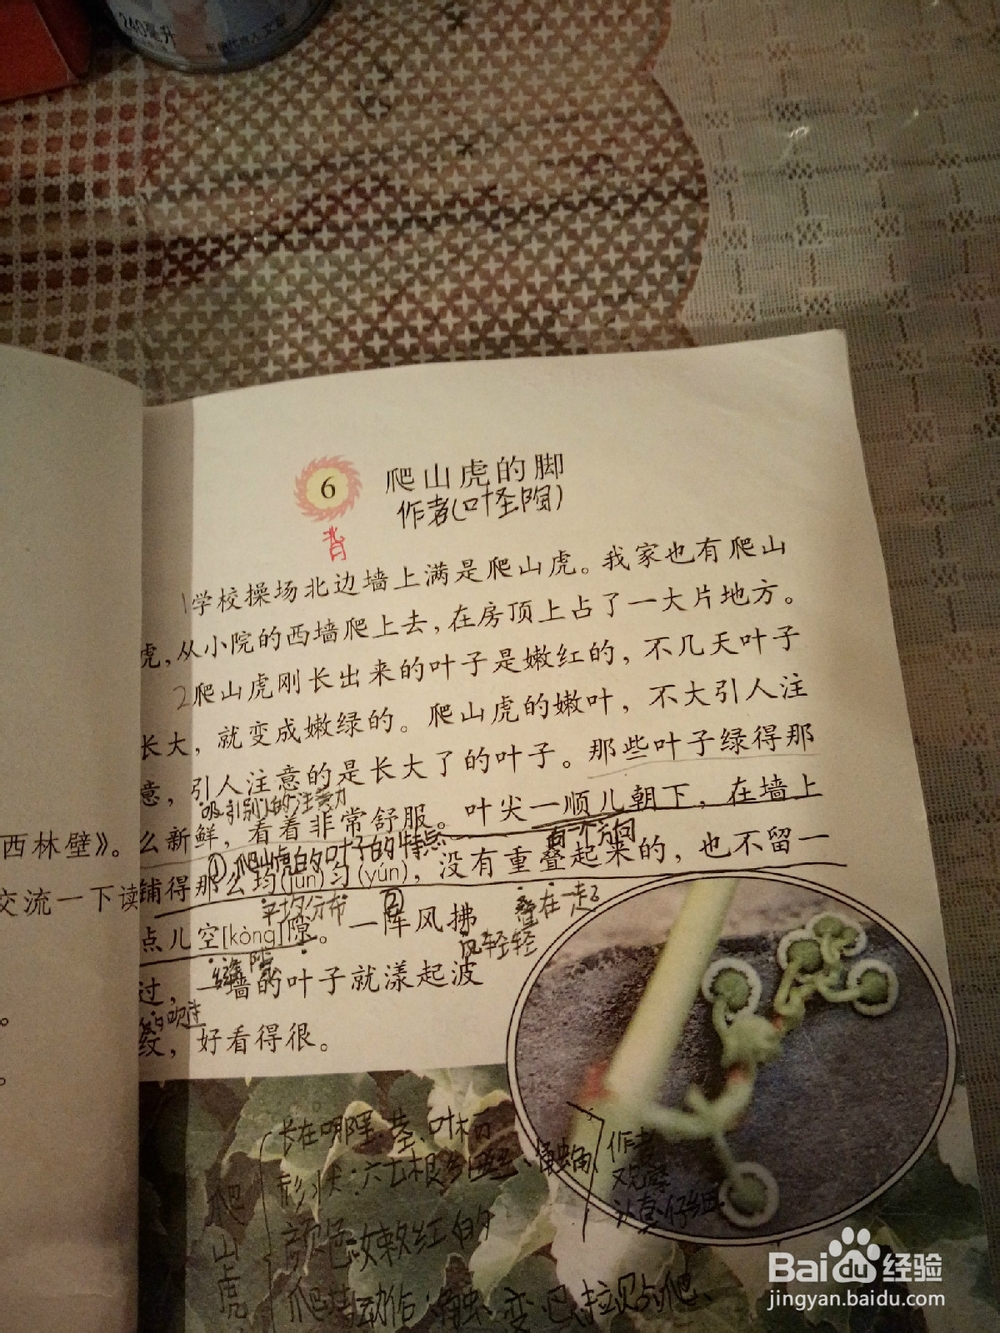 240毫升
6 爬山虎的脚
作者(叶圣陶)
背
1学校操场北边墙上满是爬山虎。我家也有爬山
虎,从小院的西墙爬上去,在房顶上占了一大片地方。
2爬山虎刚长出来的叶子是嫩红的,不几天叶子
长大,就变成嫩绿的。爬山虎的嫩叶,不大引人注
意,引人注意的是长大了的叶子。那些叶子绿得那
吸引别人的注意力
么新鲜,看着非常舒服。叶尖一顺儿朝下,在墙上
①爬山虎的叶子的特点
铺得那么均(jūn)匀(yún),没有重叠起来的,也不留一
平均分布
②
叠在一起
点儿空[kòng]隙。一阵风拂
风轻轻
缝隙
过,一墙的叶子就漾起波
的吹过
纹,好看得很。
西林壁》。
交流一下读
爬山虎
长在哪里:茎、叶柄
触角
颜色:嫩红的
爬墙动作:触、变、巴、拉、贴、爬
作者
观察
认真仔细
Baidu 经验
jingyan.baidu.com